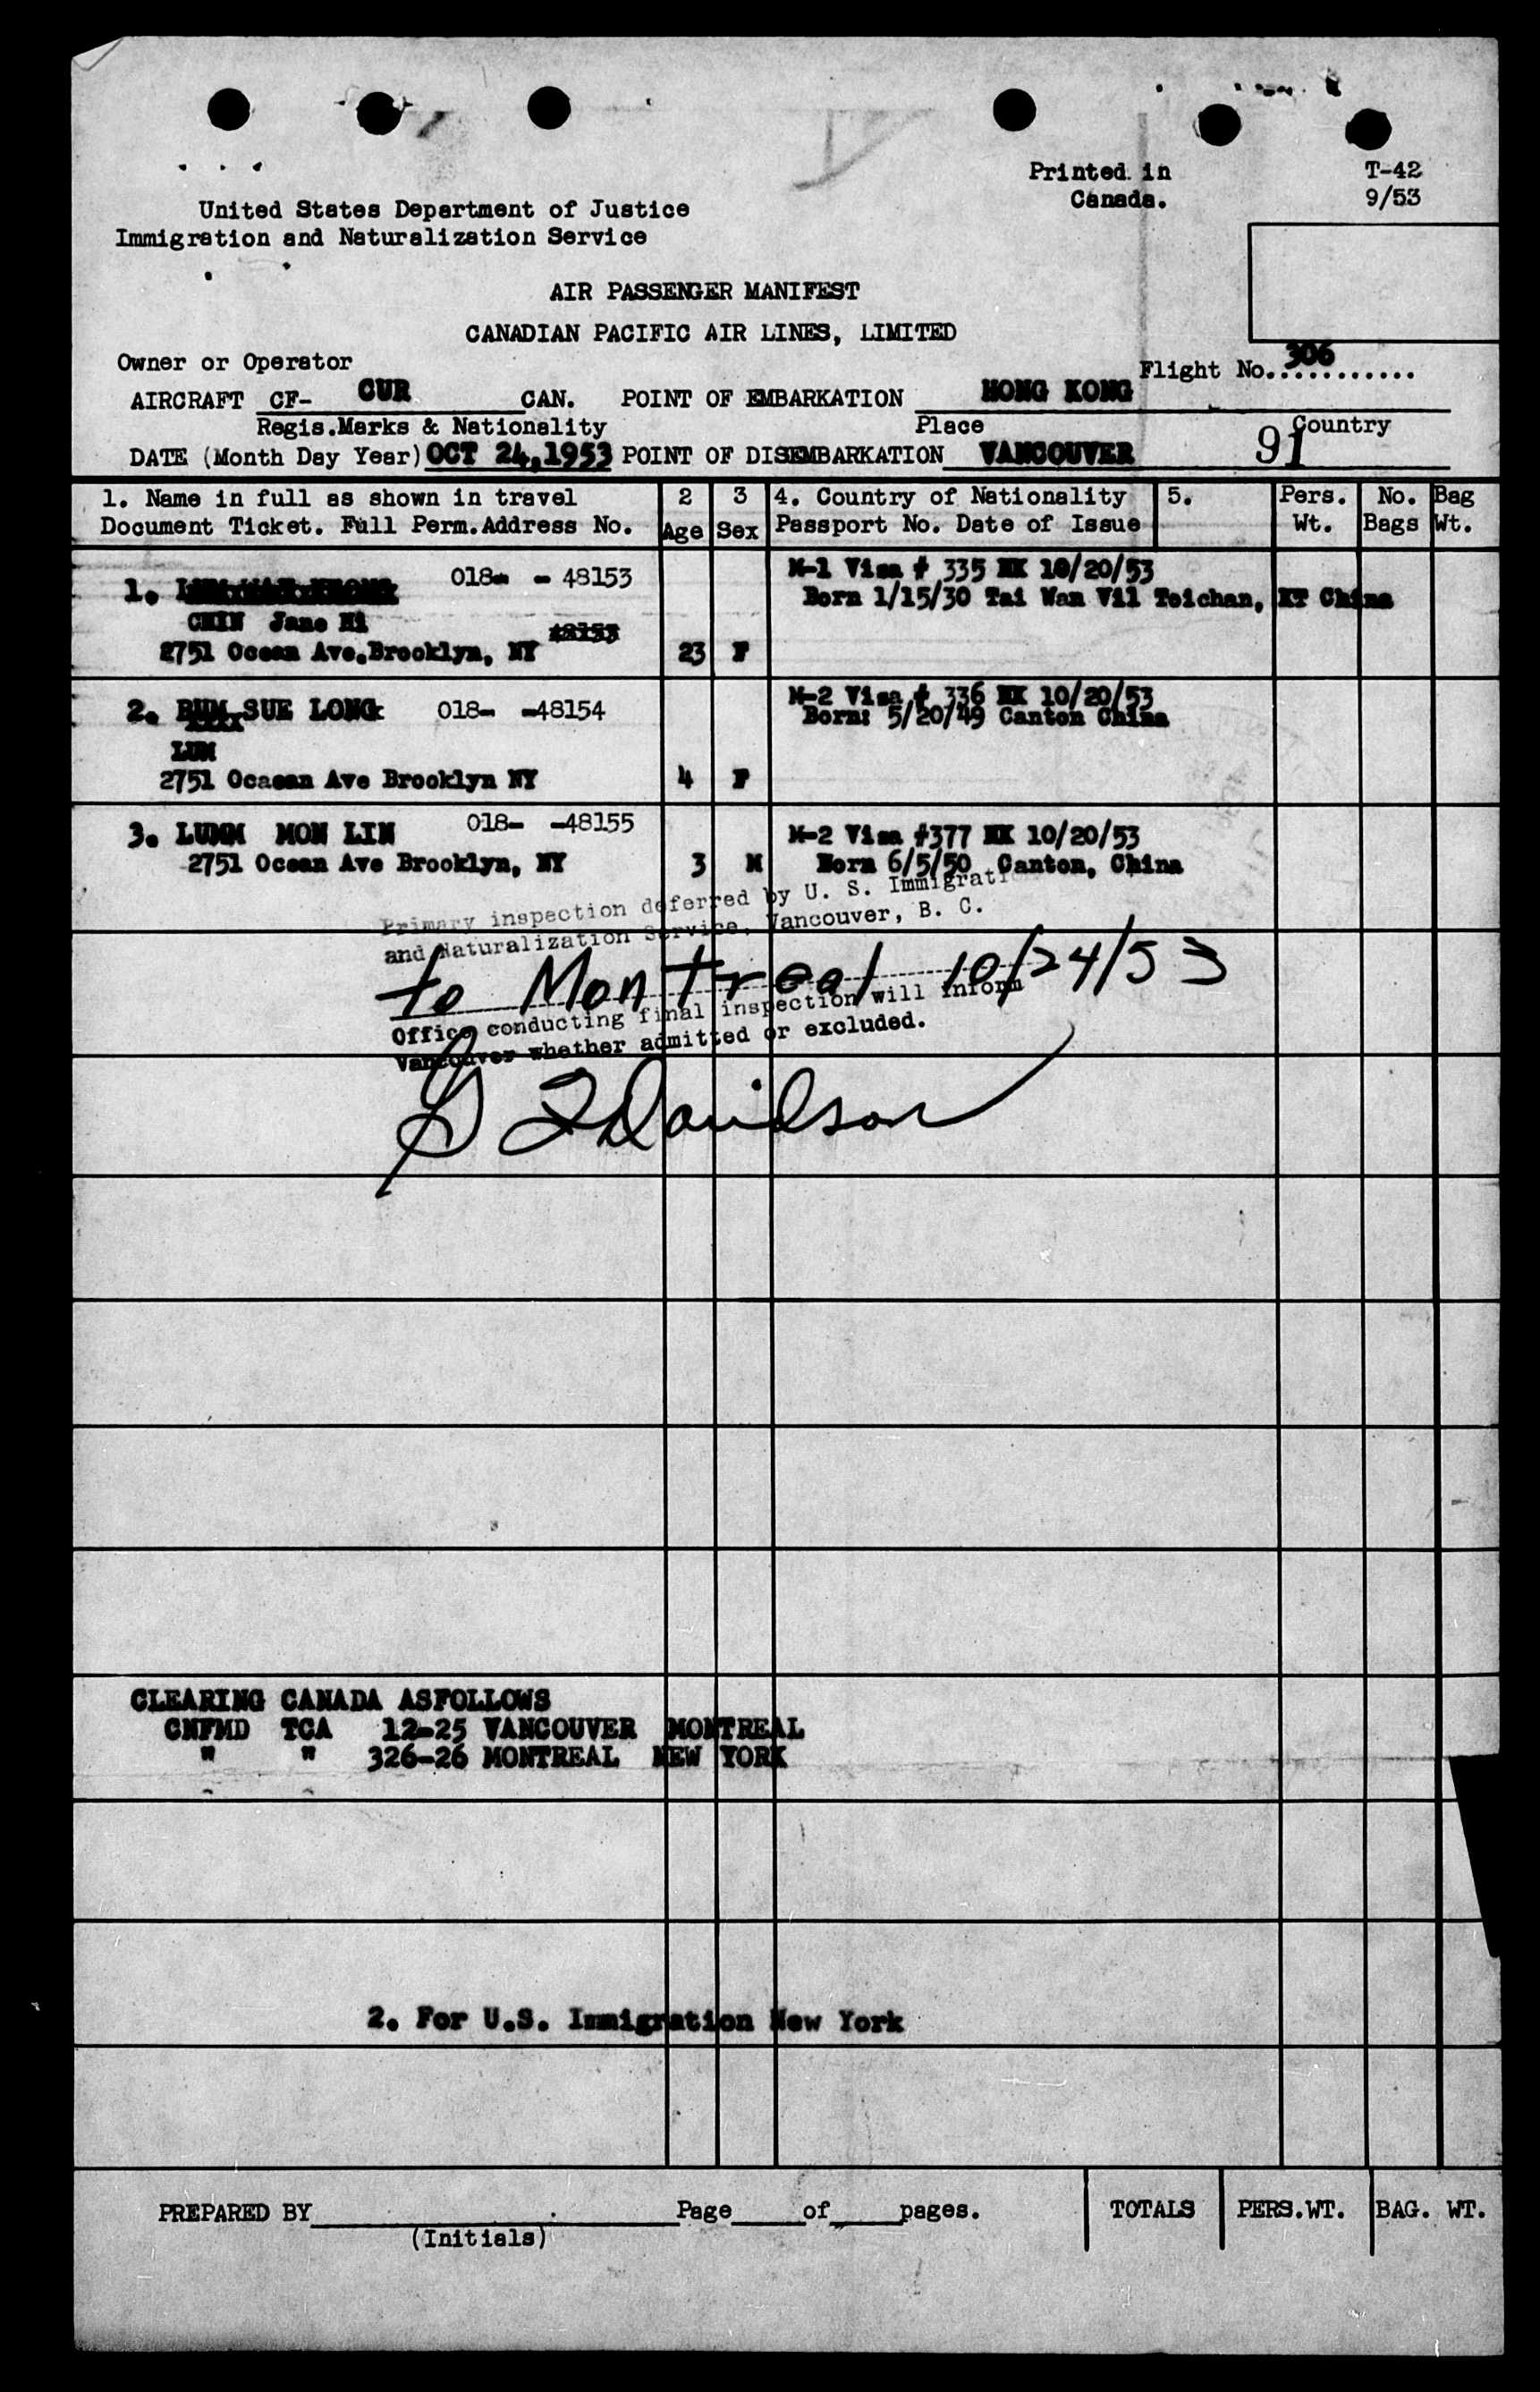 Printed in T-42
Canada. 9/53
United States Department of Justice
Immigration and Naturalization Service
AIR PASSENGER MANIFEST
CANADIAN PACIFIC AIR LINES, LIMITED
Owner or Operator
Flight No. 306
AIRCRAFT CF- CUR CAN. POINT OF EMBARKATION HONG KONG
Regis.Marks & Nationality Place Country
DATE (Month Day Year) OCT 24,1953 POINT OF DISEMBARKATION VANCOUVER 91
1. Name in full as shown in travel 2 3 4. Country of Nationality 5. Pers. No. Bag
Document Ticket. Full Perm.Address No. Age Sex Passport No. Date of Issue Wt. Bags Wt.
1. 018- - 48153 M-1 Visa # 335 HK 10/20/53
Born 1/15/30 Tai Wan Vil Toichan, KT China
CHIN Jane Hi 48153
2751 Ocean Ave.Brooklyn, NY 23 F
2. SUE LONG 018- -48154 M-2 Visa # 336 HK 10/20/53
Born: 5/20/49 Canton China
LUM
2751 Ocaean Ave Brooklyn NY 4 F
3. LUMM MON LIN 018- -48155 M-2 Visa #377 HK 10/20/53
2751 Ocean Ave Brooklyn, NY 3 M Born 6/5/50 Canton, China
Primary inspection deferred by U. S. Immigrati
and Naturalization Service, Vancouver, B. C.
to Montreal 10/24/53
Office conducting final inspection will inform
Vancouver whether admitted or excluded.
Davidson
CLEARING CANADA ASFOLLOWS
CNFMD TCA 12-25 VANCOUVER MONTREAL
" " 326-26 MONTREAL NEW YORK
2. For U.S. Immigration New York
PREPARED BY Page of pages. TOTALS PERS.WT. BAG. WT.
(Initials)